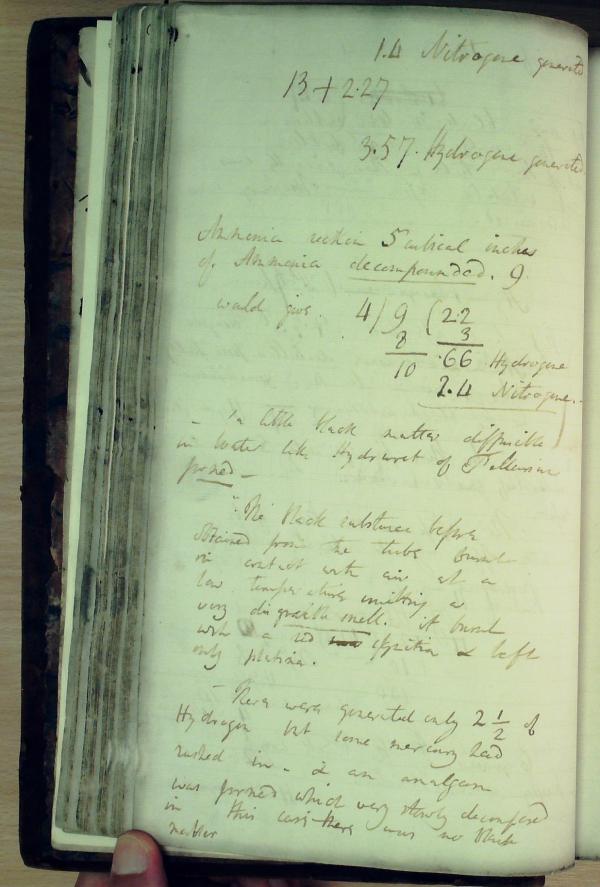 1.4 Nitrogene generated
13 + 2.27
3.57. Hydrogene generated
Ammonia within 5 cubical inches
of Ammonia decompounded. 9
would give. 4 / 9 ( 2.2
8 3
10 .66 Hydrogene
2.4 Nitrogene.
– a little black matter diffusible
in water like Hydruret of Tellurium
formed –
The black substance before
obtained from the tube burnt
in contact with air at a
low temperature emitting a
very disagreeable smell. it burnt
with a red ignition & left
only platina.
– There were generated only 2 1/2 of
Hydrogen but some mercury had
rushed in – & an amalgam
was formed which very slowly decomposed
in this case there was no black
matter